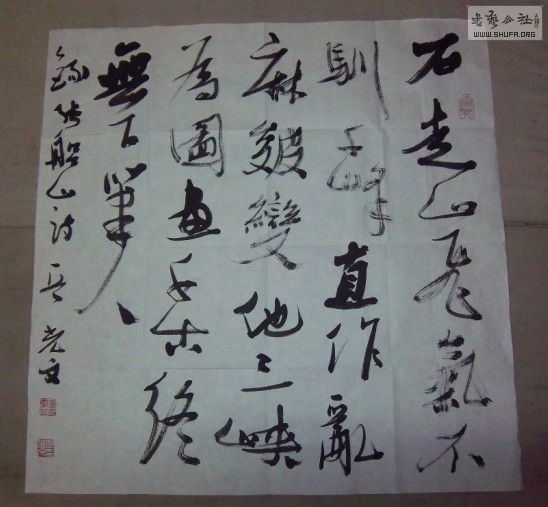 石走山飛氣不
馴千峰直作亂
麻皴變他三峽
為圖畫千古終
無下筆人
錄张船山诗 光文
書藝公社
WWW.SHUFA.ORG